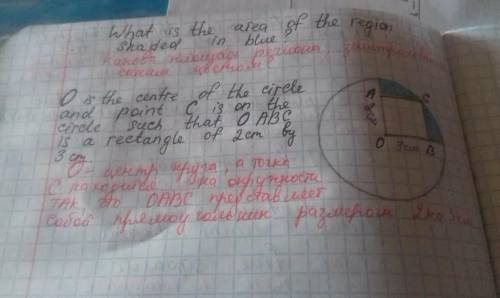 What is the area of the region
shaded in blue?
какова площадь региона,
синим цветом?
O is the centre of the circle
and point C is on the
circle such that OABC
is a rectangle of 2cm by
3 cm
O - центр круга, а точка
C находится на окружности
так что OABC представляет
собой прямоугольник размером 2 на 3 см
A
C
2см
O
3см
B